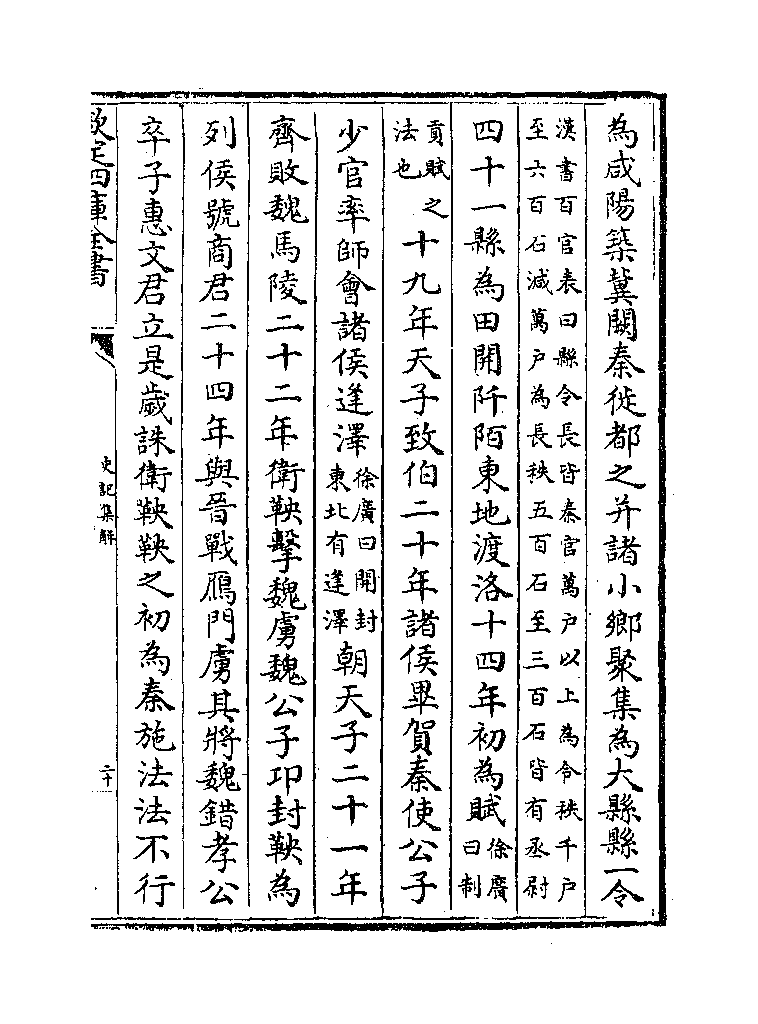 為咸陽築冀闕秦徙都之并諸小鄉聚集為大縣縣一令
漢書百官表曰縣令長皆秦官萬户以上為令秩千户
至六百石減萬户為長秩五百石至三百石皆有丞尉
四十一縣為田開阡陌東地渡洛十四年初為賦徐廣曰制
貢賦之法也十九年天子致伯二十年諸侯畢賀秦使公子
少官率師會諸侯逢澤徐廣曰開封東北有逢澤朝天子二十一年
齊敗魏馬陵二十二年衛鞅擊魏虜魏公子卬封鞅為
列侯號商君二十四年與晉戰鴈門虜其將魏錯孝公
卒子惠文君立是歲誅衛鞅鞅之初為秦施法法不行
欽定四庫全書
史記集解
二十